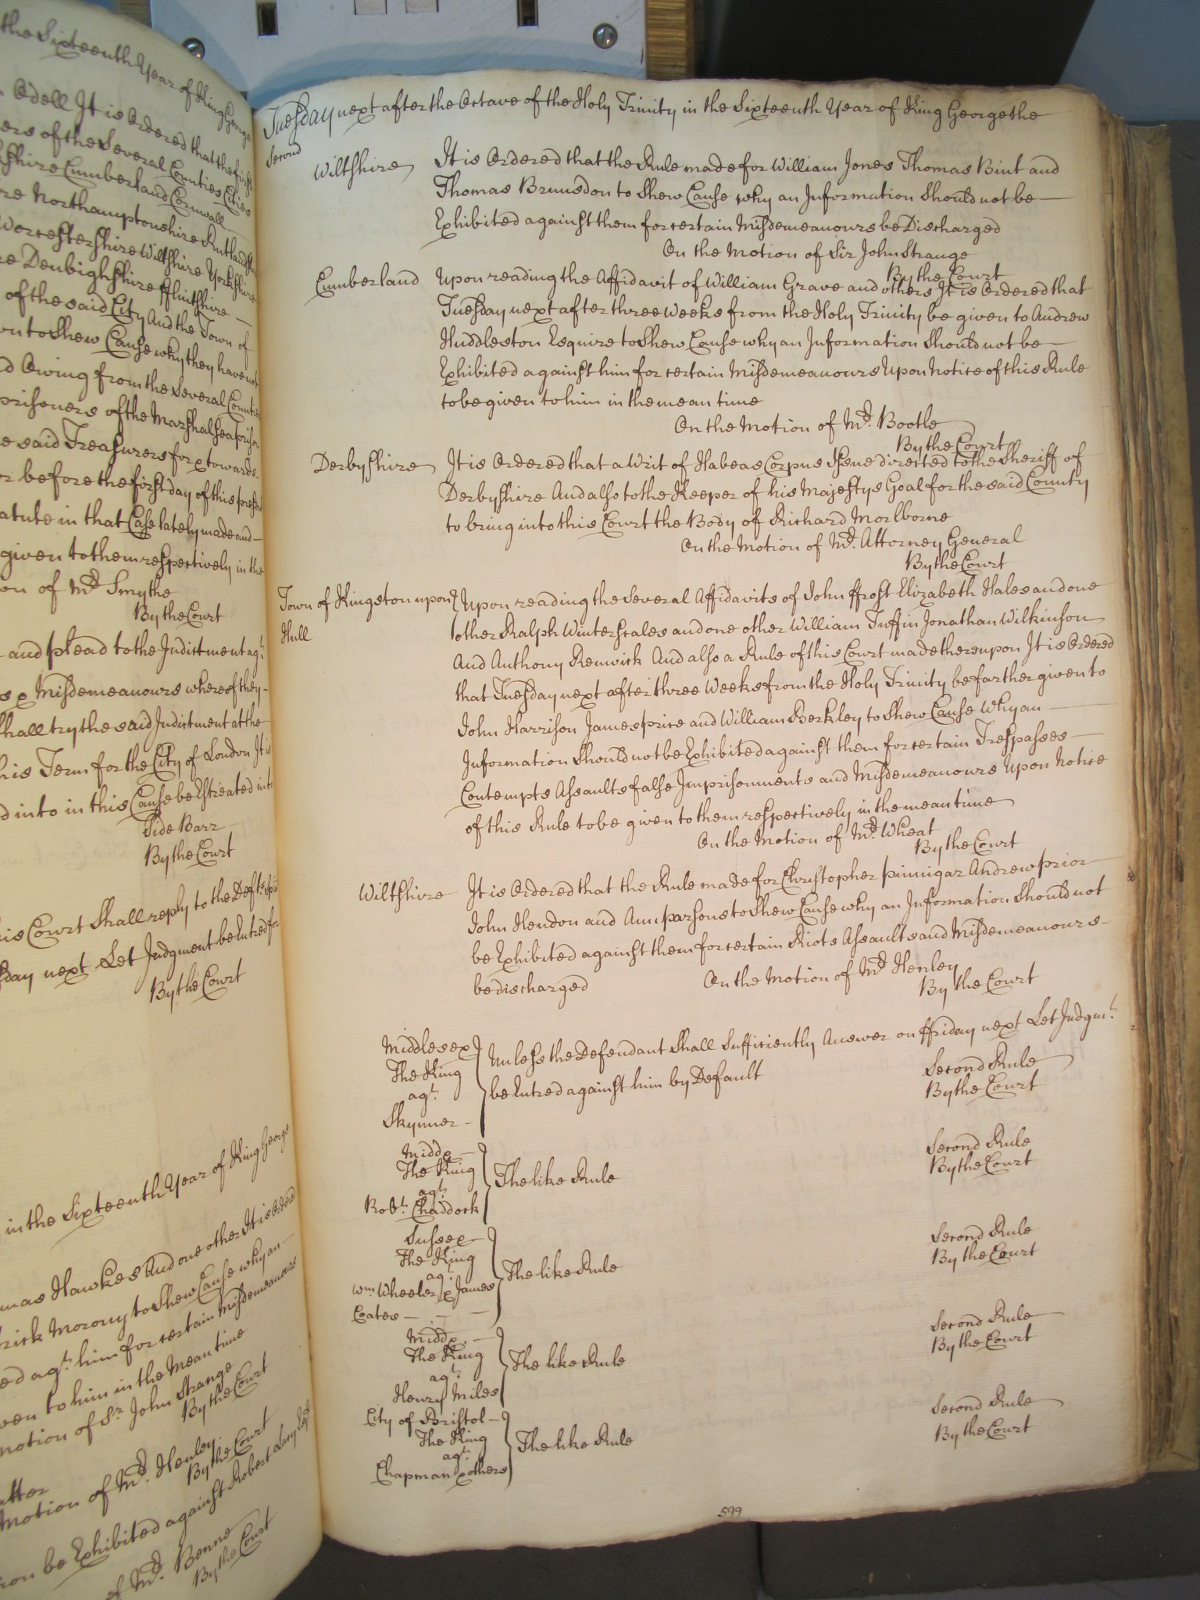 the Sixteenth Year of King George
Odell It is Ordered that the first
ers of the Several Counties Cities
shire Cumberland Cornwall
re Northamptonshire Rutland
Worcestershire Wiltshire Yorkshire
re Denbighshire fflintshire
of the said City And the Town of
on to Shew Cause why they have not
d Owing from the Several Counties
prisoners of the Marshalsea prison
e said Treasurers for & towards
or before the first day of this
atute in that Case lately made and
given to them respectively in the
on of Mr. Smythe
By the Court
and plead to the Indictment agt.
s & Misdemeanours whereof they
Shall try the said Indictment at the
his Term for the City of London It is
d into in this Cause be Estreated into
Side Barr
By the Court
his Court Shall reply to the Defts
day next Let Judgment be Entred for
By the Court
in the Sixteenth Year of King George
mas Hawkes And one other It is Ordered
rick Morony to Shew Cause why an
ed agt. him for certain Misdemeanours
ven to him in the Mean time
motion of Sr. John Strange
By the Court
atter
Motion of Mr. Henley
By the Court
ion be Exhibited against Robert
of Mr. Benne
By the Court
Tuesday next after the Octave of the Holy Trinity in the Sixteenth Year of King George the
Second
Wiltshire It is Ordered that the Rule made for William Jones Thomas Bint and
Thomas Brunsdon to Shew Cause why an Information Should not be
Exhibited against them for certain Misdemeanours be Discharged
On the Motion of Sir John Strange
By the Court
Cumberland Upon reading the Affidavit of William Grave and others It is Ordered that
Tuesday next after three Weeks from the Holy Trinity be given to Andrew
Huddleston Esquire to Shew Cause why an Information Should not be
Exhibited against him for certain Misdemeanours Upon Notice of this Rule
to be given to him in the mean time
On the Motion of Mr. Bootle
By the Court
Derbyshire It is Ordered that a Writ of Habeas Corpus Issue directed to the Sheriff of
Derbyshire And also to the Keeper of his Majestys Goal for the said County
to bring into this Court the Body of Richard Morlborne
On the Motion of Mr. Attorney General
By the Court
Town of Kingston upon Upon reading the Several Affidavits of John ffrost Elizabeth Hales and one
Hull other Ralph Winterscales and one other William Tuffin Jonathan Wilkinson
And Anthony Renwick And also a Rule of this Court made thereupon It is Ordered
that Tuesday next after three Weeks from the Holy Trinity be farther given to
John Harrison James price and William Berkley to Shew Cause Why an
Information Should not be Exhibited against them for certain Trespasses
Contempts Assaults false Imprisonments and Misdemeanours Upon Notice
of this Rule to be given to them respectively in the mean time
On the Motion of Mr. Wheat
By the Court
Wiltshire It is Ordered that the Rule made for Christopher pinnigar Andrew prior
John Hendon and Ann parsons to Shew Cause why an Information Should not
be Exhibited against them for certain Riots Assaults and Misdemeanours
be discharged On the Motion of Mr. Henley
By the Court
Middlesex
The King
agt.
Skynner
Unless the Defendant Shall Sufficiently Answer on ffriday next Let Judgmt.
be Entred against him by Default
Second Rule
By the Court
Middx
The King
agt.
Robt. Chaddock
The like Rule
Second Rule
By the Court
Sussex
The King
agt.
Wm. Wheeler & James
Coates
The like Rule
Second Rule
By the Court
Middx
The King
agt.
Henry Miles
The like Rule
Second Rule
By the Court
City of Bristol
The King
agt.
Chapman & others
The like Rule
Second Rule
By the Court
599